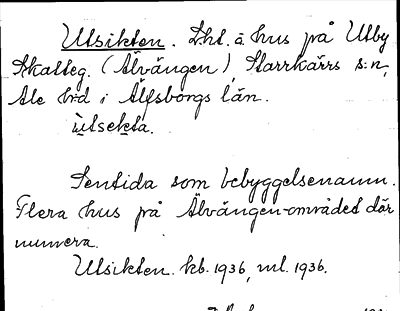 Utsikten. Lht. å hus på Utby
Skatteg. (Älvängen), Starrkärrs s:n,
Ale hd i Älfsborgs län.
ùtsekta.
Sentida som bebyggelsenamn.
Flera hus på Älvängen-området där
numera.
Utsikten. kb. 1936, ml. 1936.